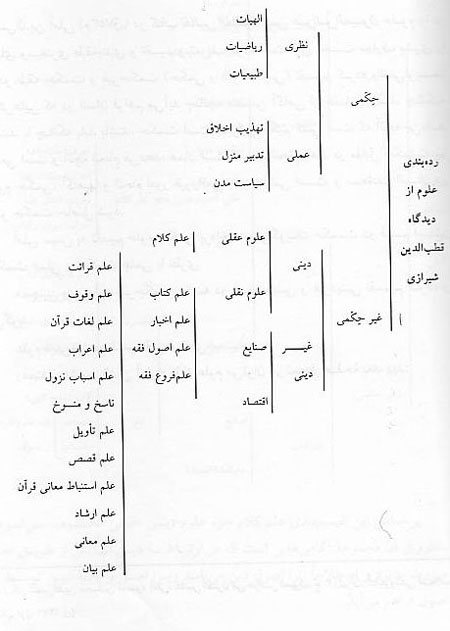 رده‌بندی
علوم از
دیدگاه
قطب‌الدین
شیرازی
حِکْمی
نظری
الهیات
ریاضیات
طبیعیات
عملی
تهذیب اخلاق
تدبیر منزل
سیاست مدن
غیر حِکْمی
دینی
علوم عقلی
علم کلام
علوم نقلی
علم کتاب
علم قرائت
علم وقوف
علم لغات قرآن
علم اعراب
علم اسباب نزول
ناسخ و منسوخ
علم تأویل
علم قصص
علم استنباط معانی قرآن
علم ارشاد
علم معانی
علم بیان
علم اخبار
علم اصول فقه
علم فروع فقه
غیــر
دینی
صنایع
اقتصاد